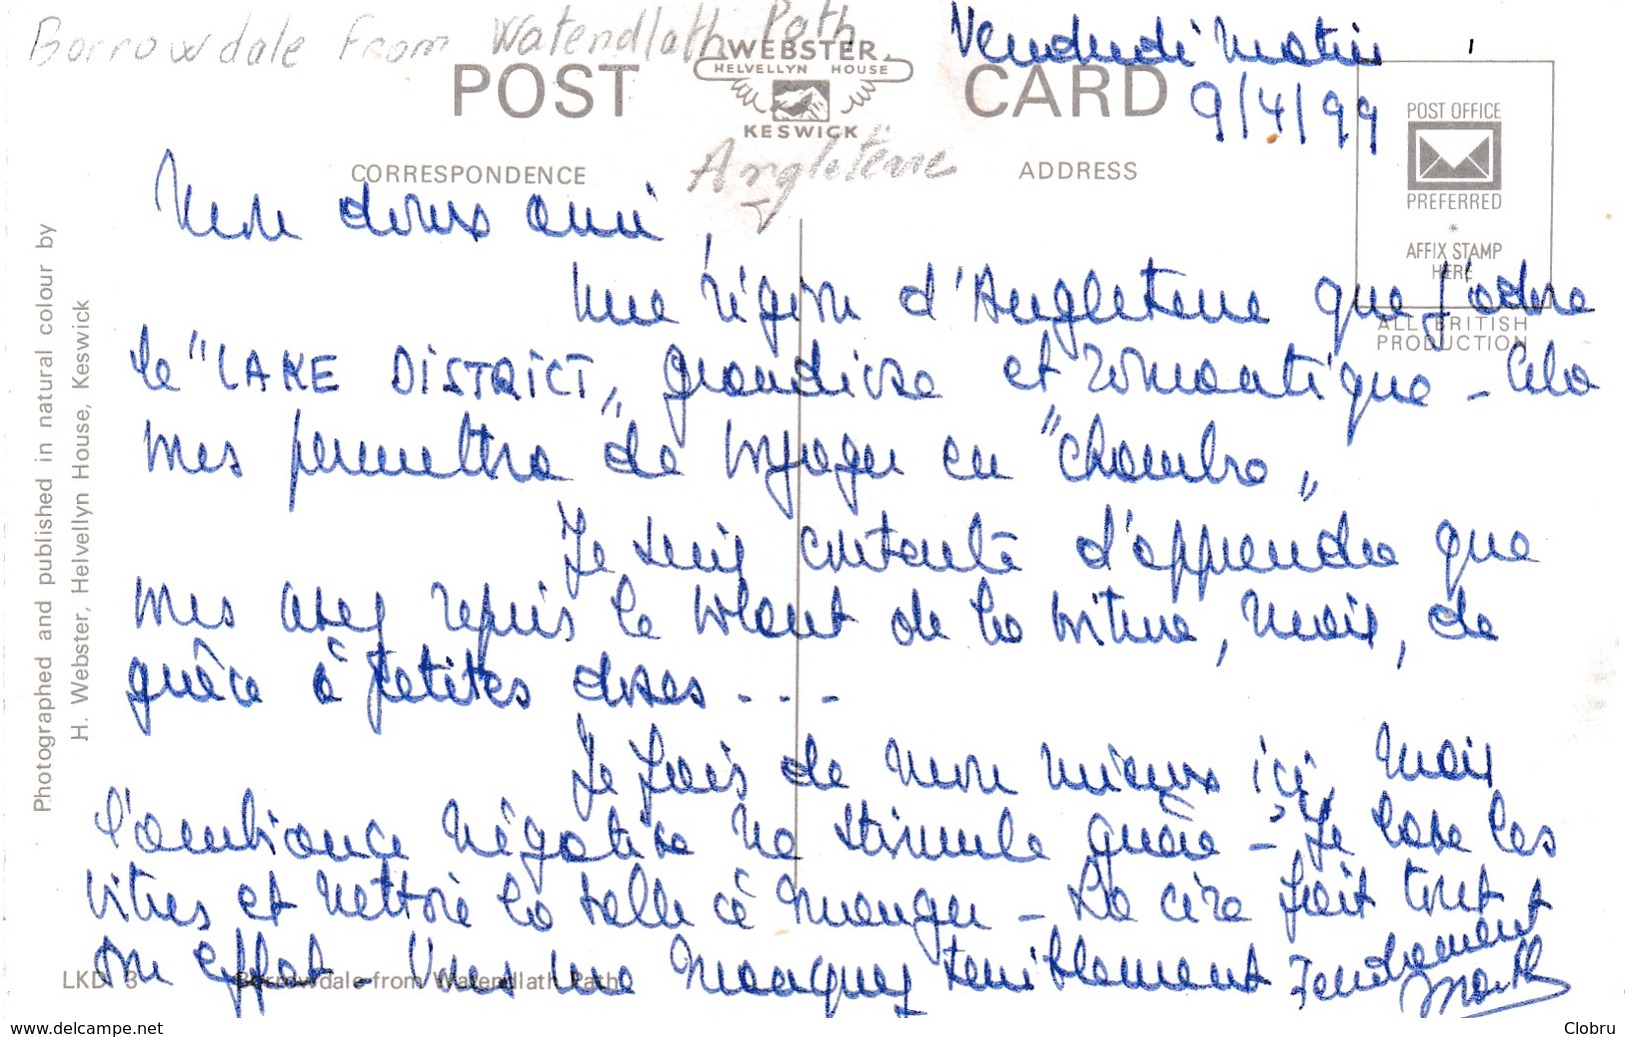 Borrowdale from Watendlath Path
Vendredi matin
9/4/99
WEBSTER
HELVELLYN HOUSE
KESWICK
POST CARD
CORRESPONDENCE
ADDRESS
Angleterre
POST OFFICE
PREFERRED
*
AFFIX STAMP
HERE
ALL BRITISH
PRODUCTION
Photographed and published in natural colour by
H. Webster, Helvellyn House, Keswick
Mon doux ami,
Une région d'Angleterre que j'adore
le "LAKE DISTRICT" grandiose et romantique - Cela
vous permettra de voyager en "chambre"
Je suis contente d'apprendre que
vous avez repris le volant de la voiture, mais, de
grâce à petites doses . . .
Je fais de mon mieux ici, mais
l'ambiance négative ne stimule guère - Je lave les
vitres et nettoie la salle à manger - La cire fait tout
son effet - Vous me manquez terriblement Tendrement
LKD 3
Borrowdale from Watendlath Path
delcampe.net
Clobru